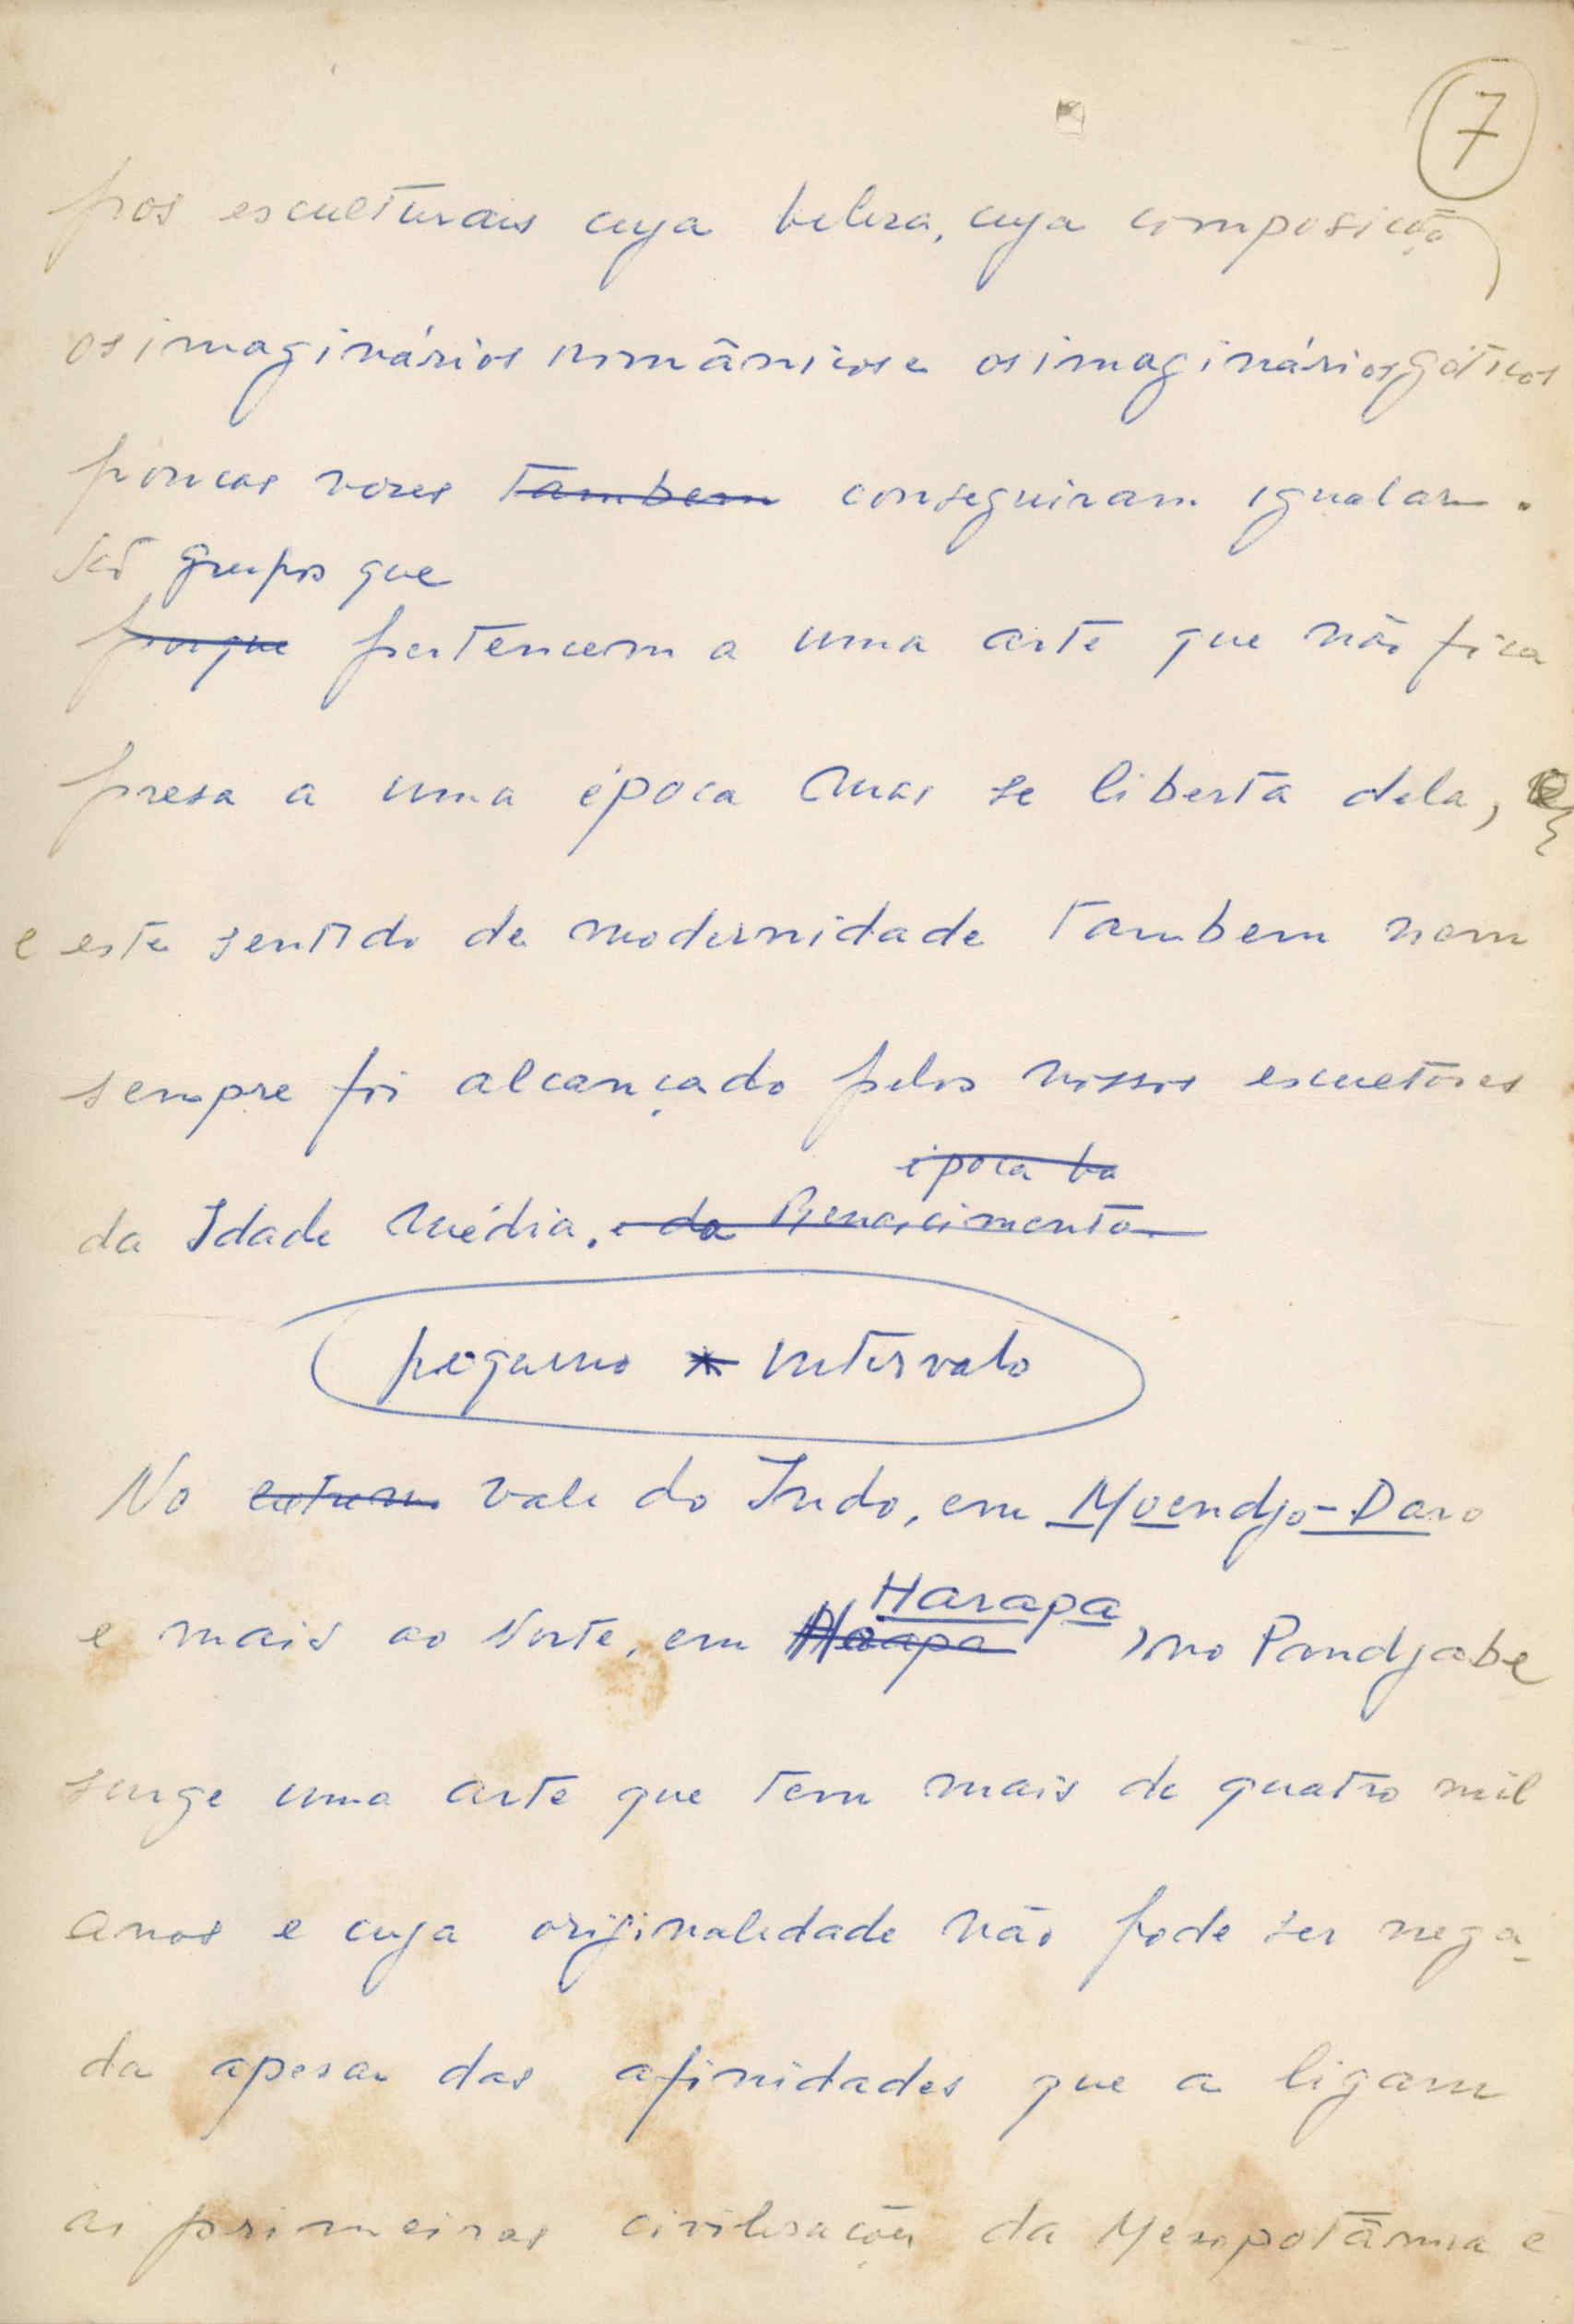 7
pos esculturais cuja beleza, cuja composição
os imaginários românicos e os imaginários góticos
poucas vezes tambem conseguiram igualar.
São grupos que
porque pertencem a uma arte que não fica
presa a uma época mas se liberta dela,
e este sentido de modernidade tambem nem
sempre foi alcançado pelos nossos escultores
época ba
da Idade Média. e da Renascimento
pequeno intervalo
No vale do Indo, em Moendjo-Daro
Harapa
e mais ao Norte, em Harapa, no Pendjabe
surge uma arte que tem mais de quatro mil
anos e cuja originalidade não pode ser nega-
da apesar das afinidades que a ligam
às primeiras civilizações da Mesopotâmia e